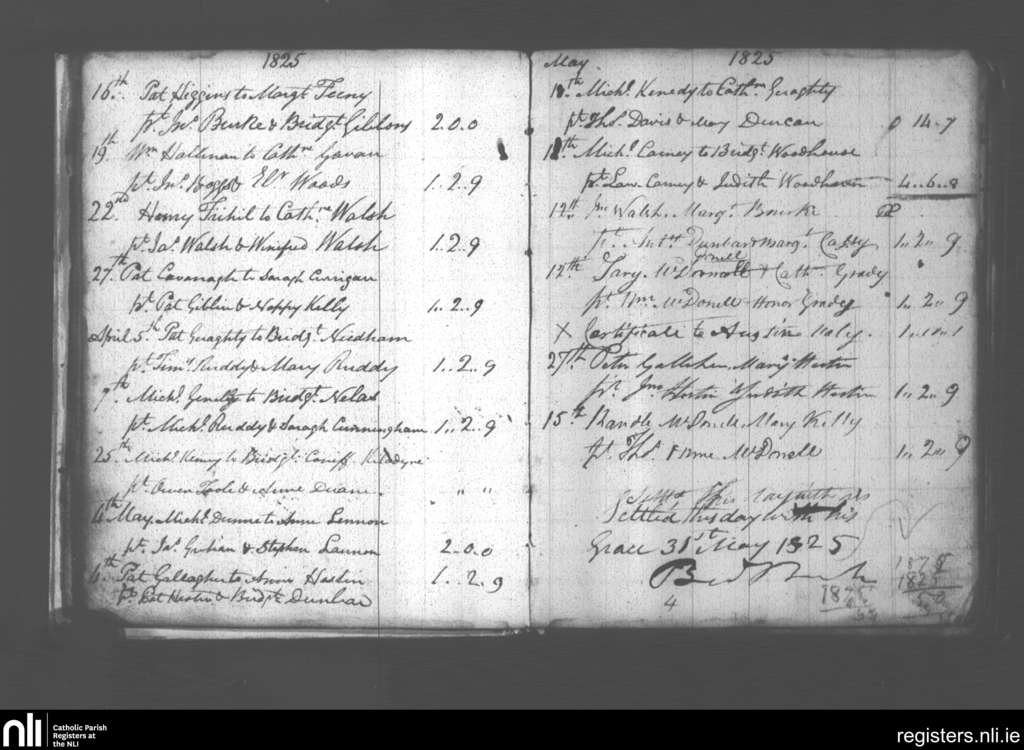 1825
16th Pat Higgins to Margt Feeny
pt. Jno. Burke & Bridgt. Gibbons 2..0..0
19th Wm Hallinan to Cathne Gavan
pt. Jno. & Elr Woods 1..2..9
22nd Henry to Cathne Walsh
pt. Jas. Walsh & Winifred Walsh 1..2..9
27th Pat Cavanagh to Saragh Currigan
pt. Pat Giblin & Nappy Kelly 1..2..9
April 5th Pat Geraghty to Bridgt. Needham
pt. Timy. Ruddy & Mary Ruddy 1..2..9
7th Michl. to Bridgt.
pt. Michl. Ruddy & Saragh Cunningham 1..2..9
25th Michl. Kenny to Bridgt.
pt. Owen Toole & Anne Duane " "
4th May. Michl. Dunne to Anne Lennon
pt. Jas. & Stephen Lannon 2..0..0
6th Pat Gallagher to Anne Hastin
pt. Pat Hestin & Bridgt. Dunbar 1..2..9
May 1825
Michl. Kenedy to Cathne Geraghty
pt. Thos. Davis & May Duncan 0 14..7
Michl. Carney to Bridgt. Woodhouse
pt. Law. Carney & Judith 4..6..8
12th Jno Walsh. Margt. Bourke
pt. Dunbar & Margt. 1..2..9
12th McDonell & Cath. Grady
Donell
pt. Wm McDonell Honor Grady 1..2..9
X Certificate to
27th Peter Mary Hestin
pt. Jno Hestin Judith Hestin 1..2..9
15th Randle McDonell Mary Kelly
pt. Thos. McDonell 1..2..9
Settled this day with his
Settled this day with his
Grace 31st May 1825
1875
1825
50
4
nli
Catholic Parish
Registers at
the NLI
registers.nli.ie